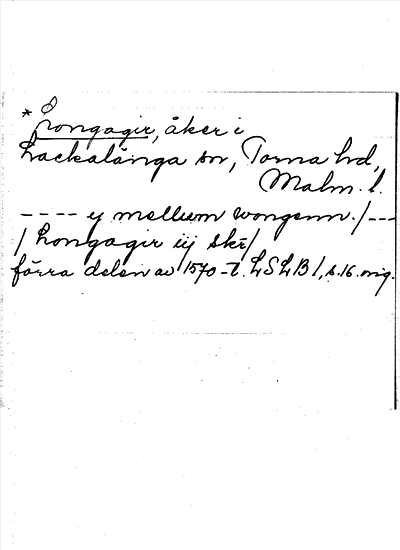 * Longagir, åker i
Lackalänga sn, Torna hd,
Malm. l.
---- y mellum wongenn. / ---
/ Longagir iij skr /
förra delen av 1570-t. LSLB 1, s. 16. orig.